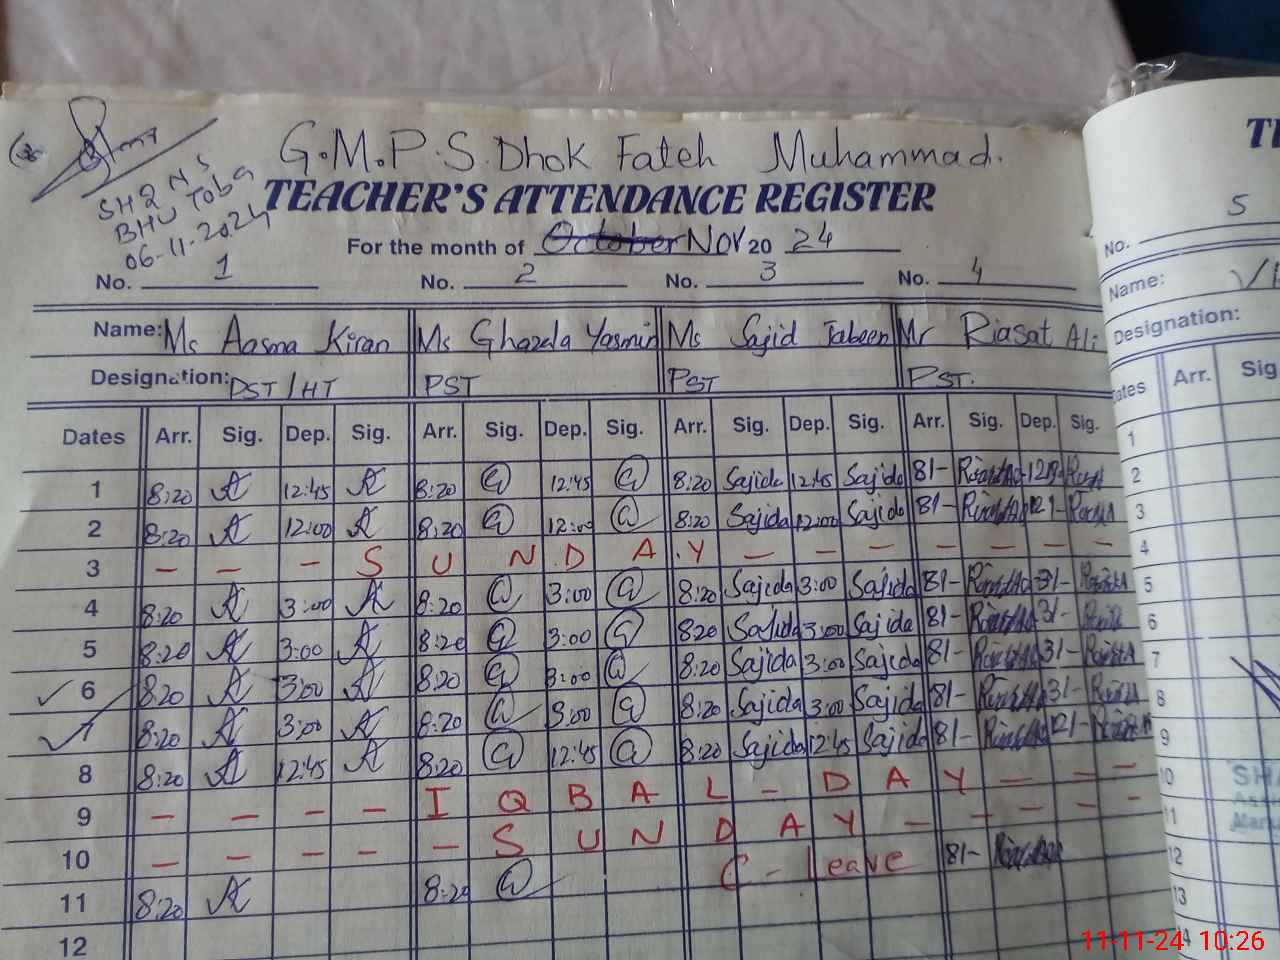 G.M.P.S. Dhok Fateh Muhammad.
SH2 NS
BHU Toba
06-11-2024
TEACHER'S ATTENDANCE REGISTER
For the month of October Nov 20 24
No. 1 No. 2 No. 3 No. 4
Name: Ms Aasma Kiran Ms Ghazala Yasmin Ms Sajid Jabeen Mr Riasat Ali
Designation: PST/HT PST PST PST.
Dates Arr. Sig. Dep. Sig. Arr. Sig. Dep. Sig. Arr. Sig. Dep. Sig. Arr. Sig. Dep. Sig.
1 8:20 12:45 8:20 12:45 8:20 Sajida 12:45 Sajida 81-
2 8:20 12:00 8:20 12:00 8:20 Sajida 12:00 Sajida 81-
3 - - - S U N D A Y - - - - - - -
4 8:20 3:00 8:20 3:00 8:20 Sajida 3:00 Sajida 81- 31-
5 8:20 3:00 8:20 3:00 820 Sajida 3:00 Sajida 81- 31-
6 8:20 3:00 8:20 3:00 8:20 Sajida 3:00 Sajida 81- 31-
7 8:20 3:00 8:20 3:00 8:20 Sajida 3:00 Sajida 81- 31-
8 8:20 12:45 8:20 12:45 8:20 Sajida 12:45 Sajida 81- 121-
9 - - - - I Q B A L - D A Y - - -
10 - - - - - S U N D A Y - - - -
11 8:20 8:20 C - Leave 81-
12
5
No.
Name:
Designation:
Arr. Sig
1
2
3
4
5
6
7
8
9
10
11
12
13
14
11-11-24 10:26